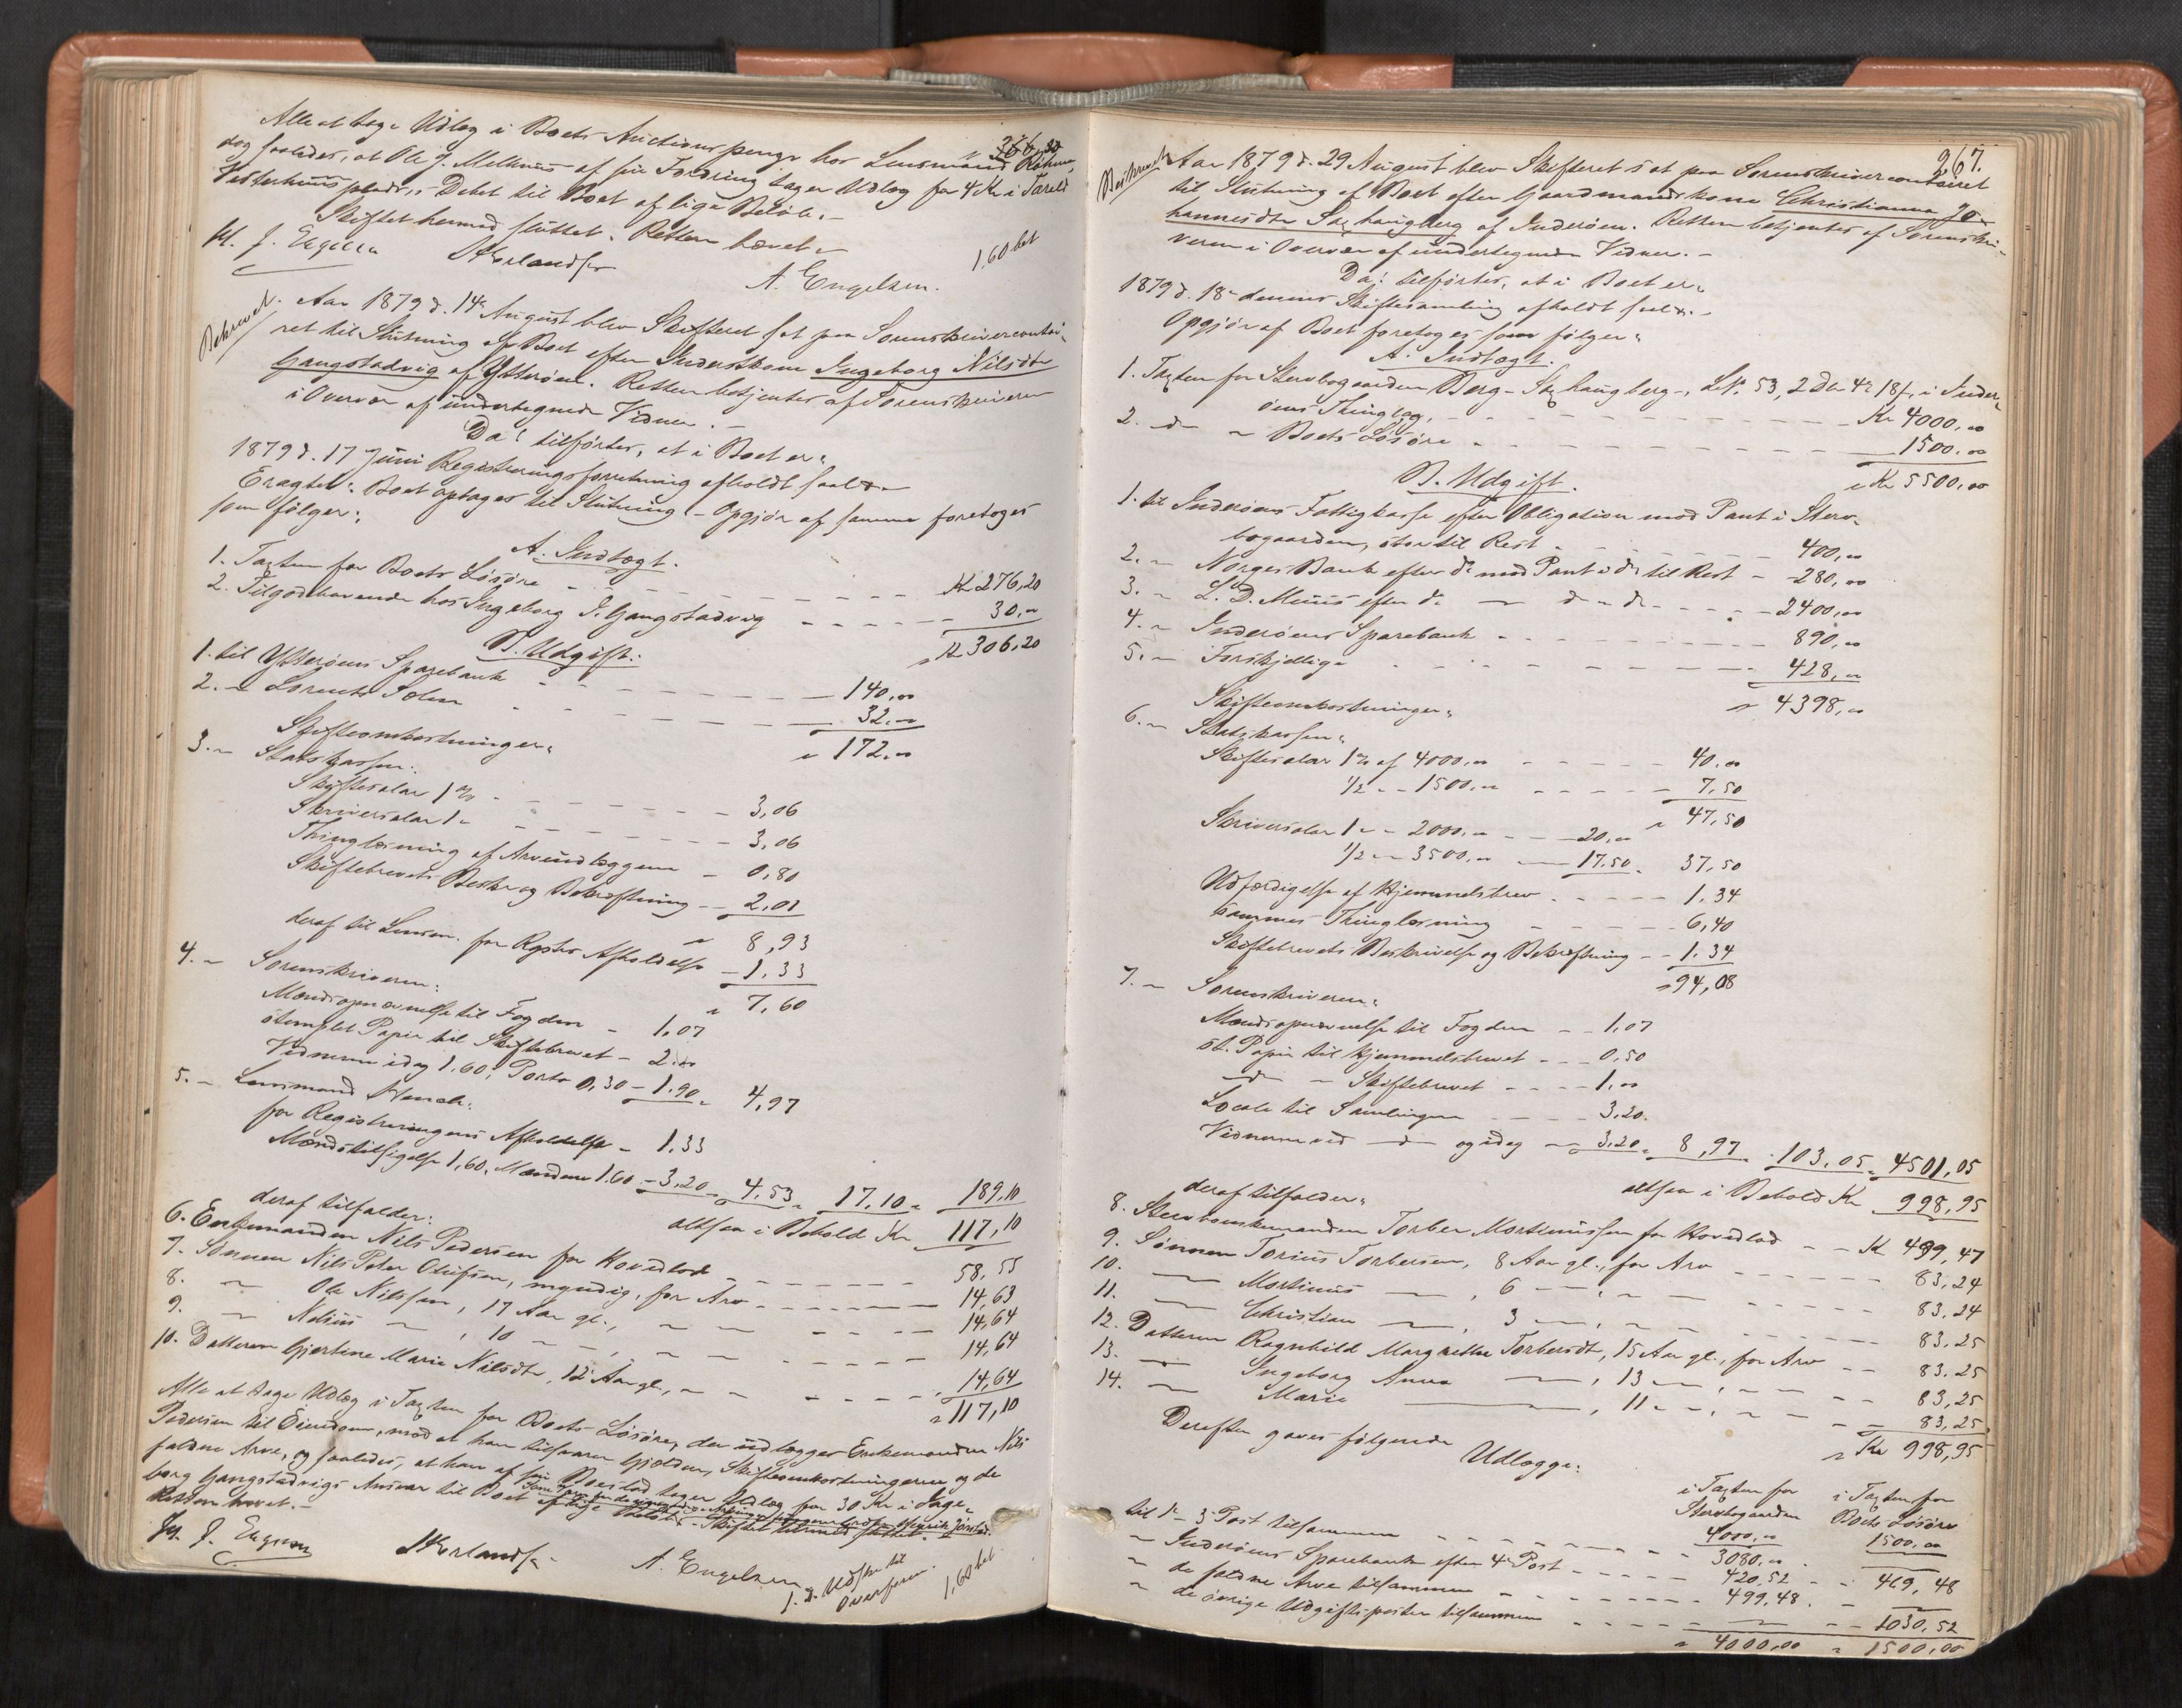 Alle at tage Udlæg i Boets Auctionspenge hos Lensmand Röhme,
dog saaledes, at Ole J. Melhuus af sin Fordring tager Udlæg for 4 Kr i Tarald
Vesterhuusplads's Debet til Boet af lige Beløb. –
Skiftet hermed sluttet. Retten hævet. –
H. J. Engelsen A. Engelsen.
1,60 bet
Bekrevet.
Aar 1879 d. 14de August blev Skifteret sat paa Sorenskrivercontoi-
ret til Slutning af Boet efter Inderstkone Ingeborg Nilsdtr
Gangstadvig af Ytterøen. Retten betjentes af Sorenskriveren
i Overvær af undertegnede Vidner. –
Da! tilførtes, at i Boet er:
1879 d. 17 Juni Registreringsforretning afholdt saal.
Eragtet: Boet optages til Slutning – Opgjør af samme foretoges
som følger:
A. Indtægt.
1. Taxten for Boets Løsøre – – – – Kr 276,20
2. Tilgodehavende hos Ingeborg I. Gangstadvig – – – 30.„
„ Kr 306,20
B. Udgift:
1. til Ytterøens Sparebank – – – 140.00
2. – Lorents Solem – – – 32.„
„ 172.00
Skifteomkostninger:
3. – Statskassen:
Skiftesalær 1 % – – – 3,06
Skriversalær 1 „ – – – 3,06
Thinglæsning af Arveudlæggene – 0,80
Skiftebrevets Beskr. og Bekræftning – 2,01
„ 8,93
deraf til Lensm. for Regstrs Afholdelse – 1,33
„ 7,60
4. – Sorenskriveren:
Mændsopnævnelse til Fogden – 1,07
stemplet Papir til Skiftebrevet – 2.00
Vidnerne idag 1.60, Porto 0,30 – 1.90 „ 4,97
5. – Lensmand
for Registreringens Afholdelse – 1.33
Mændstilsigelse 1,60, Mændene 1.60 – 3,20 „ 4,53 „ 17.10 „ 189,10
altsaa i Behold Kr 117,10
deraf tilfalder:
6. Enkemanden Nils Pedersen for Hovedlod – – – 58,55
7. Sønnen Nils Peter Olufsen, myndig, for Arv – – – 14,63
8. – Ole Nilssen, 17 Aar gl., – – – 14,64
9. – Nilius – , 10 – , – – – 14,64
10. Datteren Gjertine Marie Nilsdtr, 12 Aar gl., – – – 14,64
„ 117,10
Alle at tage Udlæg i Taxten for Boets Løsøre, der udlægges Enkemanden Nils
Pedersen til Eiendom, mod at han tilsvarer Gjælden, Skifteomkostningerne og de
faldne Arve, og saaledes, at han af sin Boeslod tager Udlæg for 30 Kr i Inge-
borg Gangstadvigs Ansvar til Boet af lige Beløb. – Skiftet hermed sluttet.
Retten hævet. –
H. J. Engelsen A. Engelsen
1,60 bet
267.
Beskrevet
Aar 1879 d. 29 August blev Skifteret sat paa Sorenskrivercontoiret
til Slutning af Boet efter Gaardmandskone Christianna Jo-
hannesdtr Saxhaugberg af Inderøen. Retten betjentes af Sorenskri-
veren i Overvær af undertegnede Vidner. –
Da! tilførtes, at i Boet er:
1879 d. 18de dennes Skiftesamling afholdt saal.
Opgjør af Boet foretoges som følger:
A. Indtægt.
1. Taxten for Stervbogaarden Berg – Saxhaugberg –, L.Nr. 53, 2 Dlr 4 ₰ 18 s., i Inder-
øens Thinglag, – – – Kr 4000.00
2. – do – Boets Løsøre – – – 1500.00
„ Kr 5500,00
B. Udgift.
1. til Inderøens Fattigkasse efter Obligation mod Pant i Sterv-
bogaarden, stor til Rest – – – 400,00
2. – Norges Bank efter do mod Pant i do til Rest – 280,00
3. – L. D. Muus efter do – do – do – – – 2400,00
4. – Inderøens Sparebank – – – 890,00
5. – Forskjellige – – – 428,00
„ 4398,00
Skifteomkostninger:
6. – Statskassen:
Skiftesalær 1 % af 4000.00 – – – 40.00
1/2 – – 1500.00 – – – 7,50
„ 47,50
Skriversalær 1 – – 2000.00 – – 20,00
1/2 – – 3500.00 – 17.50 „ 37,50
Udfærdigelse af Hjemmelsbrev – – – 1.34
sammes Thinglæsning – – – 6,40
Skiftebrevets Beskrivelse og Bekræftning – – 1.34
„ 94,08
7. – Sorenskriveren:
Mændsopnævnelse til Fogden – – 1,07
st. Papir til Hjemmelsbrevet – – – 0,50
– do – Skiftebrevet – – – 1,00
Locale til Samlingen – – – 3.20.
Vidnerne ved – do – og idag – 3.20 „ 8,97 „ 103.05 „ 4501,05
altsaa i Behold Kr 998,95
deraf tilfalder:
8. Stervboenkemanden Torber Mortinussen for Hovedlod – – Kr 499,47
9. Sønnen Torius Torbersen, 8 Aar gl., for Arv – – – 83,24
10. – Mortinus – , 6 – , – – – 83.24
11. – Christian – , 3 – , – – – 83.25
12. Datteren Ragnhild Margrethe Torbersdtr, 15 Aar gl., for Arv – – 83.25
13. – Ingeborg Anna – , 13 – , – – – 83,25
14. – Marie – , 11 – , – – – 83,25
„ Kr 998,95
Derefter gaves følgende
Udlægge:
i Taxten for Stervbogaarden 4000,00
i Taxten for Boets Løsøre 1500.00
til 1ste – 3die Post tilsammen – – – 3080.00
– Inderøens Sparebank efter 4de Post – – – 420,52 – 469,48
– de faldne Arve tilsammen – – – 499,48. –
– de øvrige Udgiftsposter tilsammen – – – 1030,52
„ 4000,00 „ 1500,00